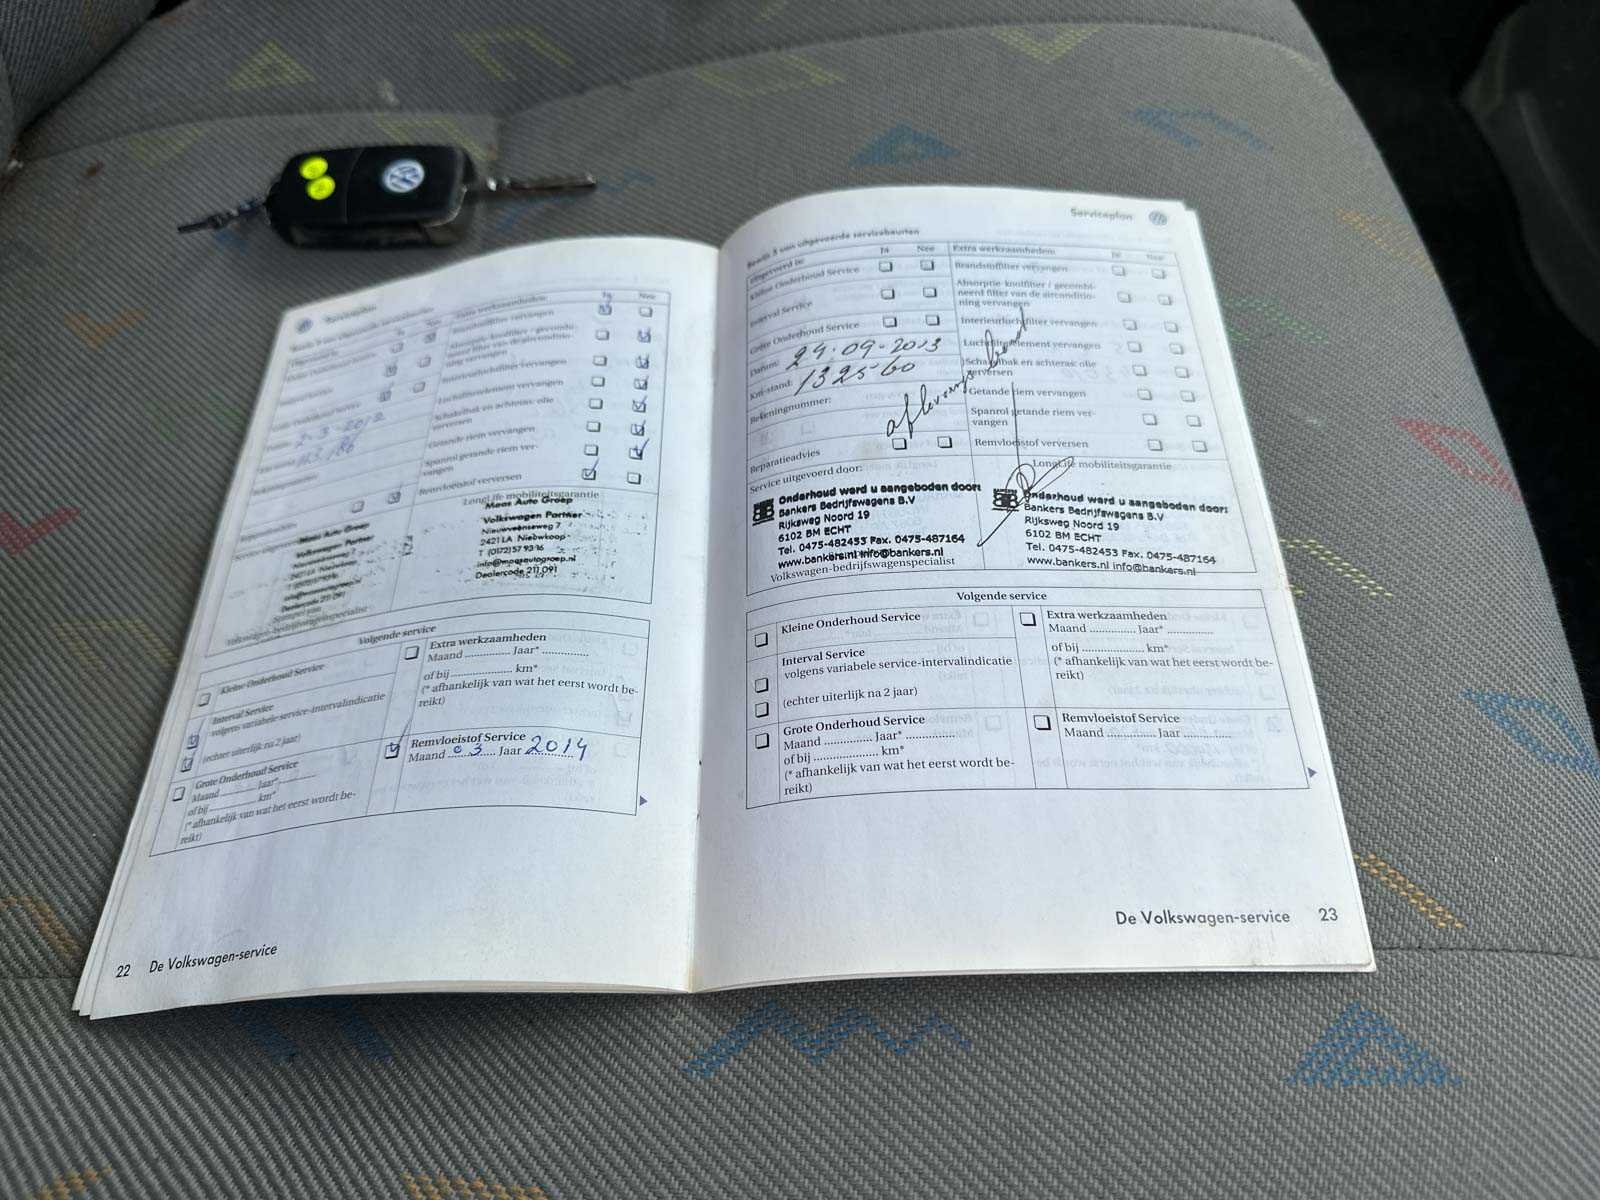 Serviceplan
Ja Nee
Extra werkzaamheden:
Brandstoffilter vervangen
Absorptie-koolfilter / gecombi-
neerd filter van de airconditio-
ning vervangen
Interieurluchtfilter vervangen
Luchtfilterelement vervangen
Schakelbak en achteras: olie
verversen
Getande riem vervangen
Spanrol getande riem ver-
vangen
Remvloeistof verversen
LongLife mobiliteitsgarantie
Maas Auto Groep
Volkswagen Partner
Nieuwveenseweg 7
2421 LA Nieuwkoop
T (0172) 57 93 16
info@maasautogroep.nl
Dealercode 211 091
Maas Auto Groep
Volkswagen Partner
Volkswagen-bedrijfswagenspecialist
Volgende service
Kleine Onderhoud Service
Interval Service
volgens variabele service-intervalindicatie
(echter uiterlijk na 2 jaar)
Grote Onderhoud Service
Maand .............. Jaar* ..............
of bij .................... km*
(* afhankelijk van wat het eerst wordt be-
reikt)
Extra werkzaamheden
Maand .............. Jaar* ..............
of bij .................... km*
(* afhankelijk van wat het eerst wordt be-
reikt)
Remvloeistof Service
Maand 03 Jaar 2014
22 De Volkswagen-service
Serviceplan
Bewijs 3 van uitgevoerde servicebeurten
Uitgevoerd is: Ja Nee
Kleine Onderhoud Service
Interval Service
Grote Onderhoud Service
Datum: 24-09-2013
Km-stand: 132560
Rekeningnummer:
afleveringsbeurt
Reparatieadvies
Service uitgevoerd door:
Onderhoud werd u aangeboden door:
Bankers Bedrijfswagens B.V
Rijksweg Noord 19
6102 BM ECHT
Tel. 0475-482453 Fax. 0475-487164
www.bankers.nl info@bankers.nl
Volkswagen-bedrijfswagenspecialist
Extra werkzaamheden: Ja Nee
Brandstoffilter vervangen
Absorptie-koolfilter / gecombi-
neerd filter van de airconditio-
ning vervangen
Interieurluchtfilter vervangen
Luchtfilterelement vervangen
Schakelbak en achteras: olie
verversen
Getande riem vervangen
Spanrol getande riem ver-
vangen
Remvloeistof verversen
LongLife mobiliteitsgarantie
Onderhoud werd u aangeboden door:
Bankers Bedrijfswagens B.V
Rijksweg Noord 19
6102 BM ECHT
Tel. 0475-482453 Fax. 0475-487164
www.bankers.nl info@bankers.nl
Volgende service
Kleine Onderhoud Service
Interval Service
volgens variabele service-intervalindicatie
(echter uiterlijk na 2 jaar)
Grote Onderhoud Service
Maand .............. Jaar* ..............
of bij .................... km*
(* afhankelijk van wat het eerst wordt be-
reikt)
Extra werkzaamheden
Maand .............. Jaar* ..............
of bij .................... km*
(* afhankelijk van wat het eerst wordt be-
reikt)
Remvloeistof Service
Maand .............. Jaar ..............
De Volkswagen-service 23